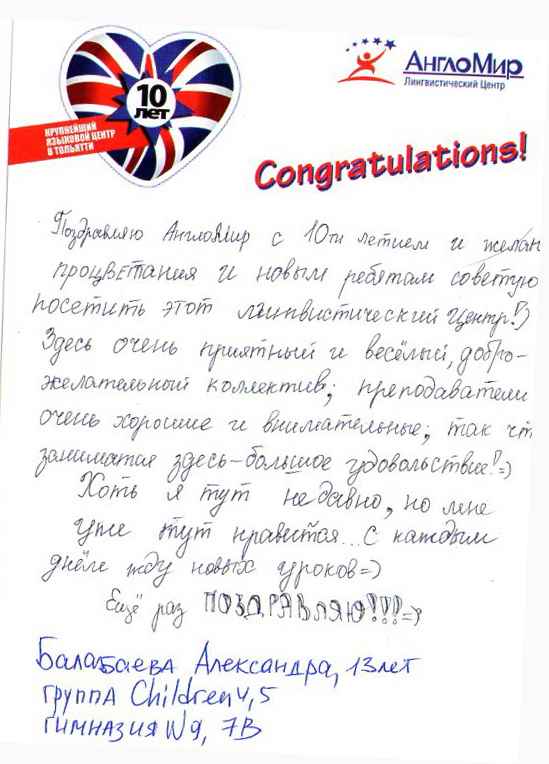 10
ЛЕТ
КРУПНЕЙШИЙ
ЯЗЫКОВОЙ ЦЕНТР
В ТОЛЬЯТТИ
АнглоМир
Лингвистический Центр
Congratulations!
Поздравляю АнглоМир с 10ти летием и желаю
процветания и новым ребятам советую
посетить этот лингвистический центр!)
Здесь очень приятный и весёлый, добро-
желательный коллектив; преподаватели
очень хорошие и внимательные; так чт
заниматся здесь-большое удовольствие!=)
Хоть я тут недавно, но мне
уже тут нравится... С каждым
днём жду новых уроков=)
Ещё раз ПОЗДРАВЛЯЮ!!!=)
Балабаева Александра, 13 лет
группа Children 4,5
гимназия №9, 7В